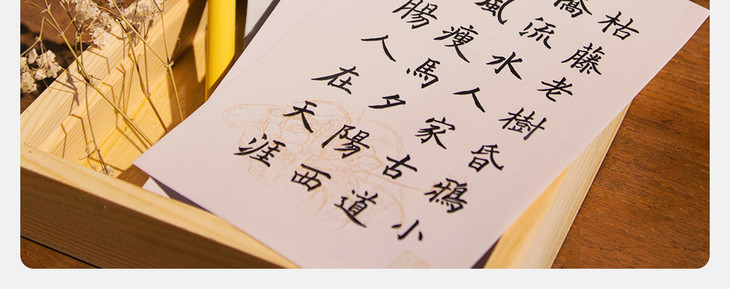 枯藤老樹昏鴉小
橋流水人家古道
風瘦馬夕陽西
腸人在天涯